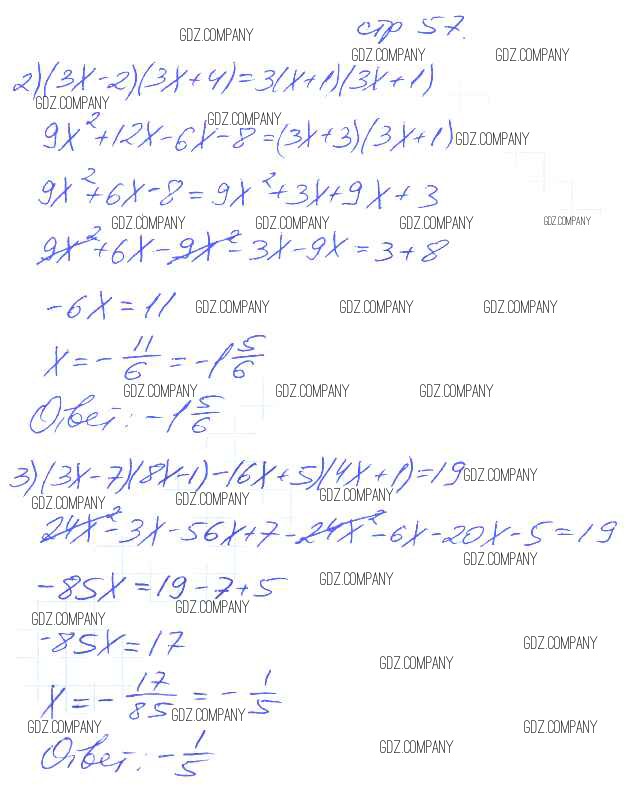 GDZ.COMPANY стр 57.
GDZ.COMPANY GDZ.COMPANY
2) (3x-2)(3x+4)=3(x+1)(3x+1)
GDZ.COMPANY GDZ.COMPANY
9x²+12x-6x-8=(3x+3)(3x+1) GDZ.COMPANY
9x²+6x-8=9x²+3x+9x+3
GDZ.COMPANY GDZ.COMPANY GDZ.COMPANY GDZ.COMPANY
9x²+6x-9x²-3x-9x=3+8
-6x=11 GDZ.COMPANY GDZ.COMPANY GDZ.COMPANY
x=-11/6=-1 5/6
GDZ.COMPANY GDZ.COMPANY GDZ.COMPANY
Ответ: -1 5/6
3) (3x-7)(8x-1)-(6x+5)(4x+1)=19 GDZ.COMPANY
GDZ.COMPANY GDZ.COMPANY GDZ.COMPANY
24x²-3x-56x+7-24x²-6x-20x-5=19
GDZ.COMPANY
-85x=19-7+5 GDZ.COMPANY
GDZ.COMPANY GDZ.COMPANY
-85x=17 GDZ.COMPANY
GDZ.COMPANY
x=-17/85=-1/5
GDZ.COMPANY GDZ.COMPANY GDZ.COMPANY
Ответ: -1/5 GDZ.COMPANY